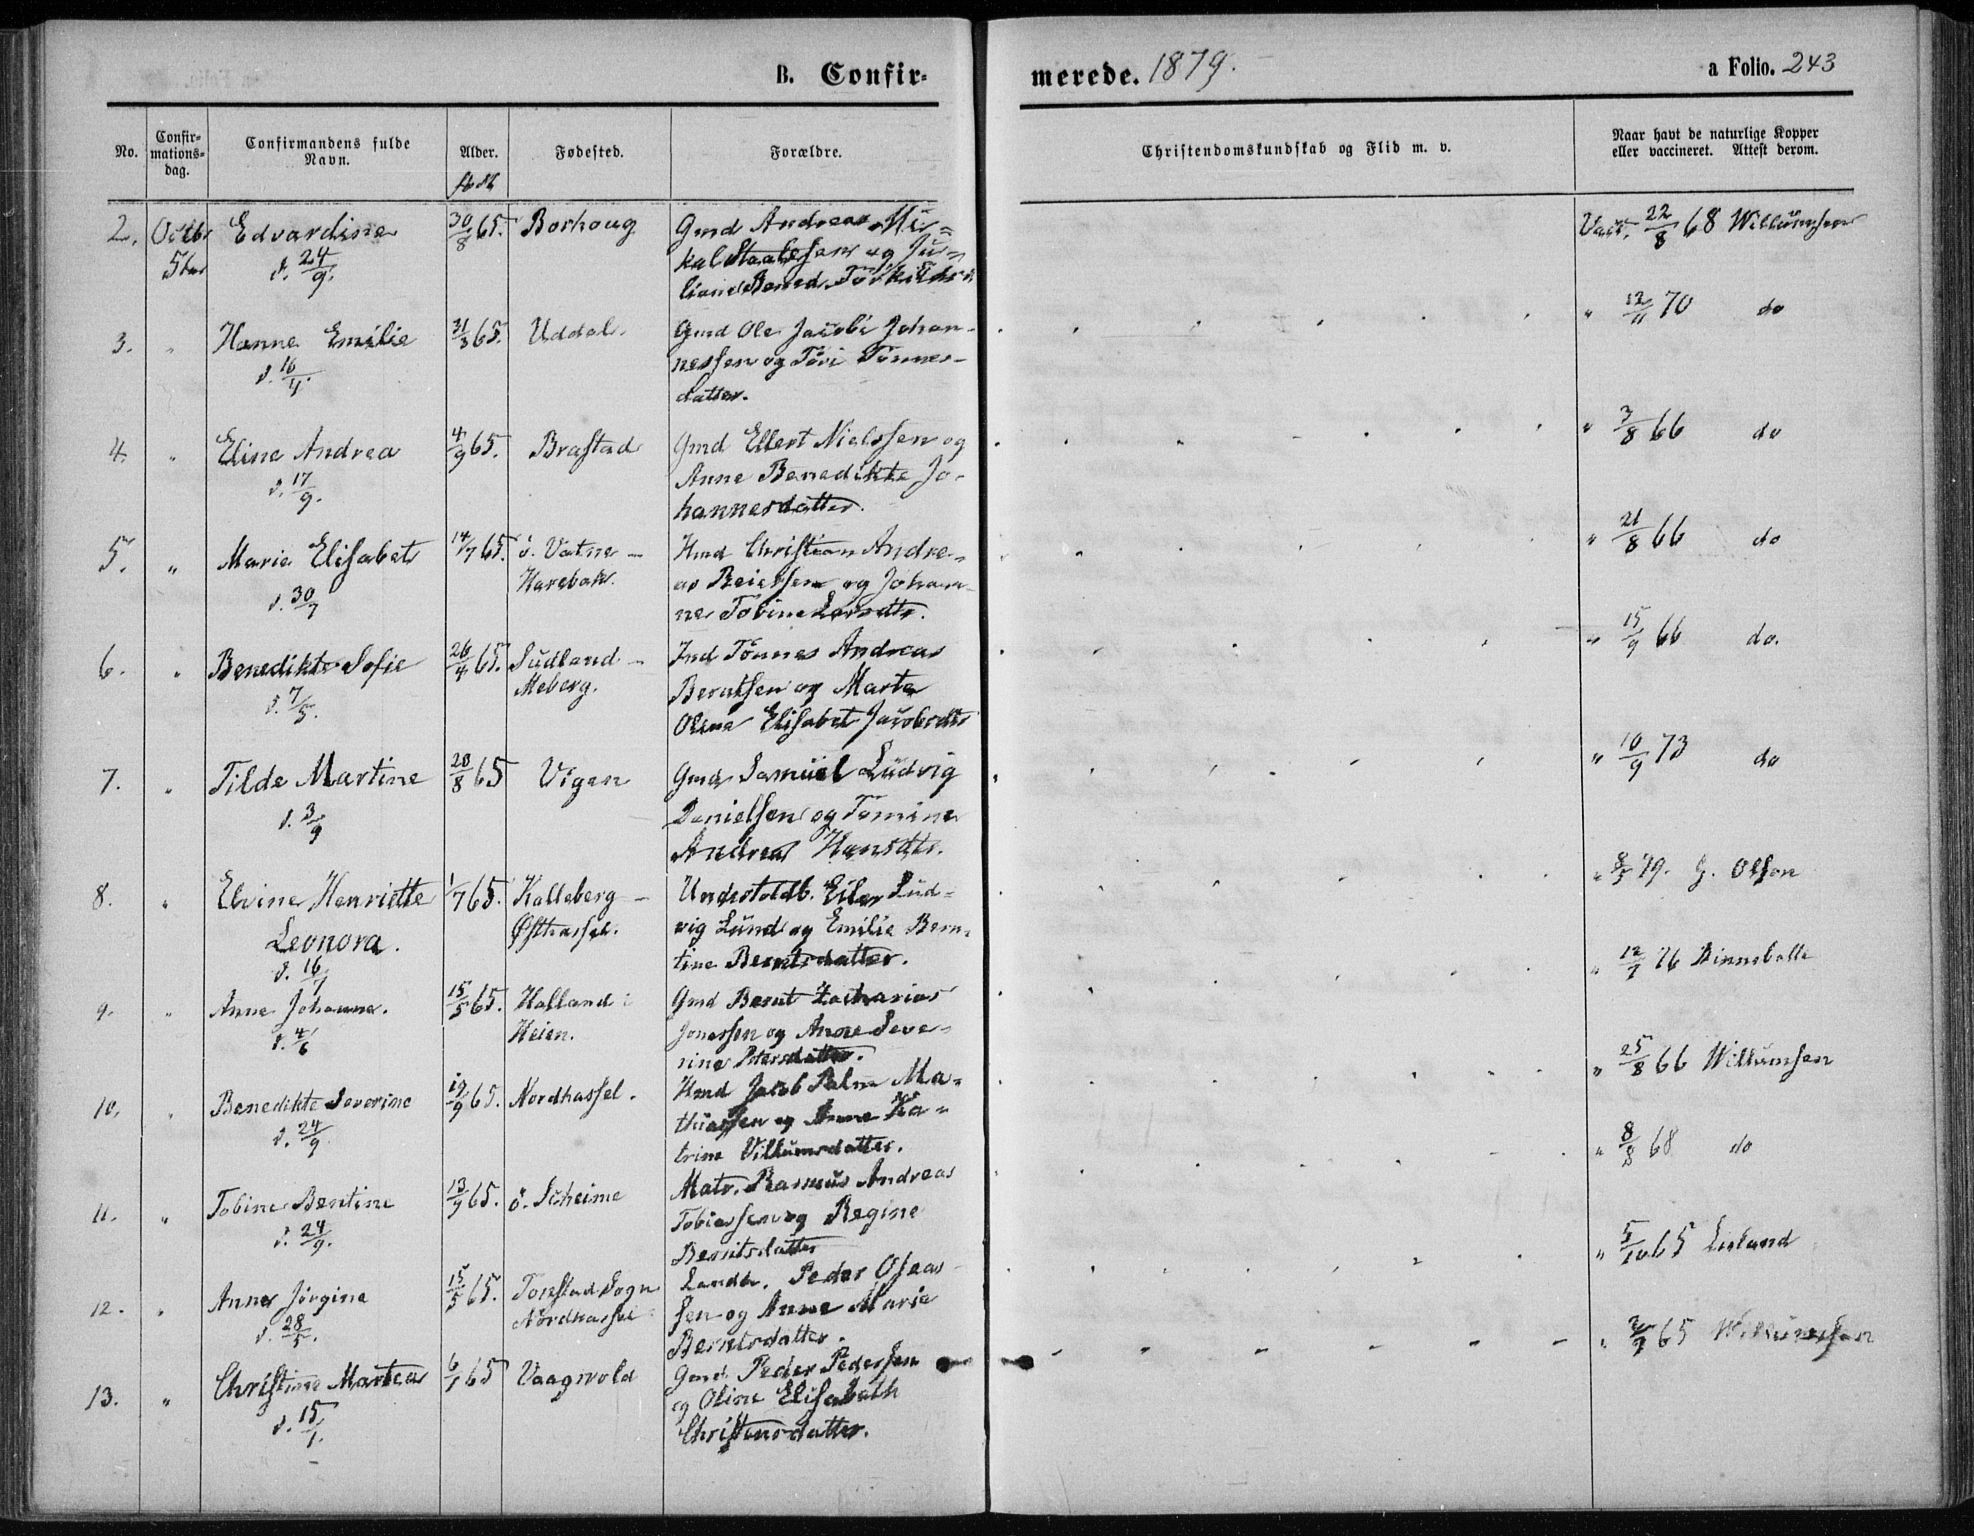 B. Confir-
merede. 1879.
a Folio. 243
No.
Confir-
mations-
dag.
Confirmandens fulde
Navn.
Alder.
Fødested.
Forældre.
Christendomskundskab og Flid m. v.
Naar havt de naturlige Kopper
eller vaccineret. Attest derom.
2. Octbr Edvardine 30/8 65. Borhoug Gmd Andreas Mi-
5te d. 24/9. kal Staalesen og Ju-
liane Bened. Torkilds
Vacc. 22/8 68 Willumsen
3. " Hanne Emilie 31/3 65. Uddal. Gmd Ole Jacobi Johan-
d. 16/4. nessen og Tøri Tønnes-
datter.
" 12/11 70 do
4. " Eline Andrea 4/9 65. Brastad Gmd Ellert Nielssen og
d. 17/9. Anne Benedikte Jo-
hannesdatter.
" 3/8 66 do
5. " Marie Elisabet 14/7 65. ö. Vatne -
Harebak.
d. 30/7
Hmd Christian Andre-
as Reiersen og Johan-
ne Tobine Larsdtr.
" 21/8 66 do
6. " Benedikte Sofie 26/4 65. Sudland -
Meberg.
d. 7/5.
Ind Tønnes Andreas
Berntsen og Marte
Oline Elisabet Jacobsdtr
" 15/9 66 do.
7. " Tilde Martine 28/8 65 Vigen Gmd Samuel Ludvig
d. 3/9 Danielsen og Tomine
Andrea Hansdtr.
" 10/9 73 do
8. " Elvine Henriette 1/7 65. Kalleberg -
Leonora. Østhassel.
d. 16/7
Undertoldb. Eiler Lud-
vig Lund og Emilie Bern-
tine Berntsdatter.
" 8/5 79. G. Olsen
9. " Anne Johanne. 15/5 65. Halland i
d. 4/6 Heien.
Gmd Bernt Zacharias
Jonassen og Anne Seve-
rine Petersdatter.
" 12/7 76
10. " Benedikte Severine 19/9 65. Nordhassel. Hmd Jacob Palm Ma-
d. 24/9. thiassen og Anne Ka-
trine Villumsdatter.
" 25/8 66 Willumsen
11. " Tobine Bentine 13/9 65. ö. Skeime Matr. Rasmus Andreas
d. 24/9. Tobiassen og Regine
Berntsdatter
" 8/8 68 do
12. " Anne Jørgine 15/5 65. Tonstad Sogn
d. 28/5. Nordhassel
Landh. Peder Oseas-
sen og Anne Marie
Berntsdatter.
" 5/10 65 Lisland
13. " Christine Martea 6/1 65 Vaagvold Gmd Peder Pedersen
d. 15/1. og Oline Elisabeth
Christensdatter.
" 65 Willumsen